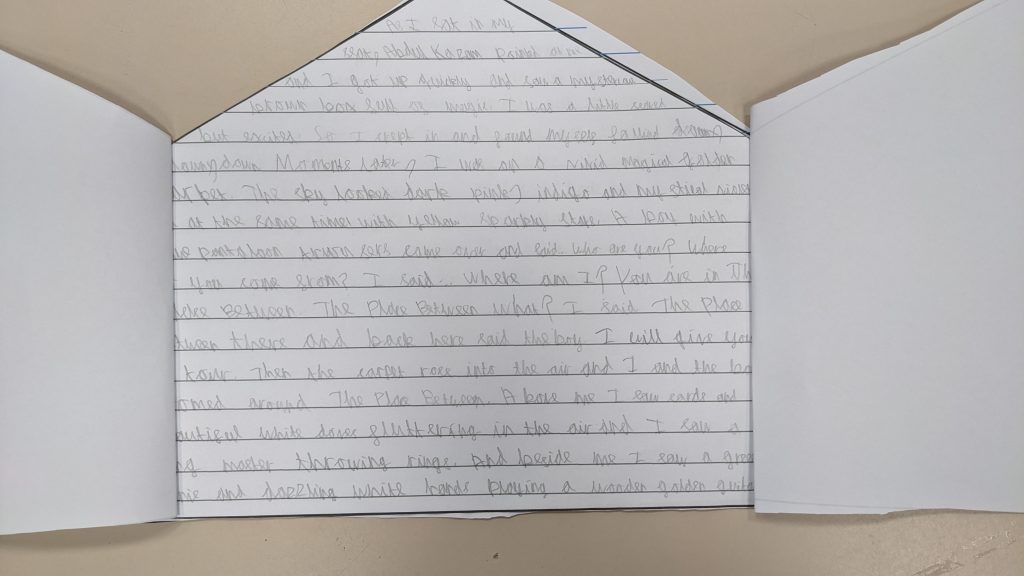 As I sat in my
seat, Abdul Kazam pointed at me
and I got up quickly and saw a mysterious
brown box full of magic I was a little scared
but excited. So I crept in and found myself falling down,
down, down Moments later, I was on a vivid magical golden
The sky looked dark pink, indigo and my
at the same time with yellow sparkly stars. A boy with
pantaloon came over and said. Who are you? Where
you come from? I said.. Where am I? You are in Th
Between. The Place Between what? I said The Place
tween there and back here said the boy I will give you
tour. Then the carpet rose into the air and I and the bo
omed around The Place Between. Above me I saw cards and
autiful white doves gluttering in the air and I saw a
ng master throwing rings. And beside me I saw a gree
nie and dazzling white hands playing a wonder golden guita